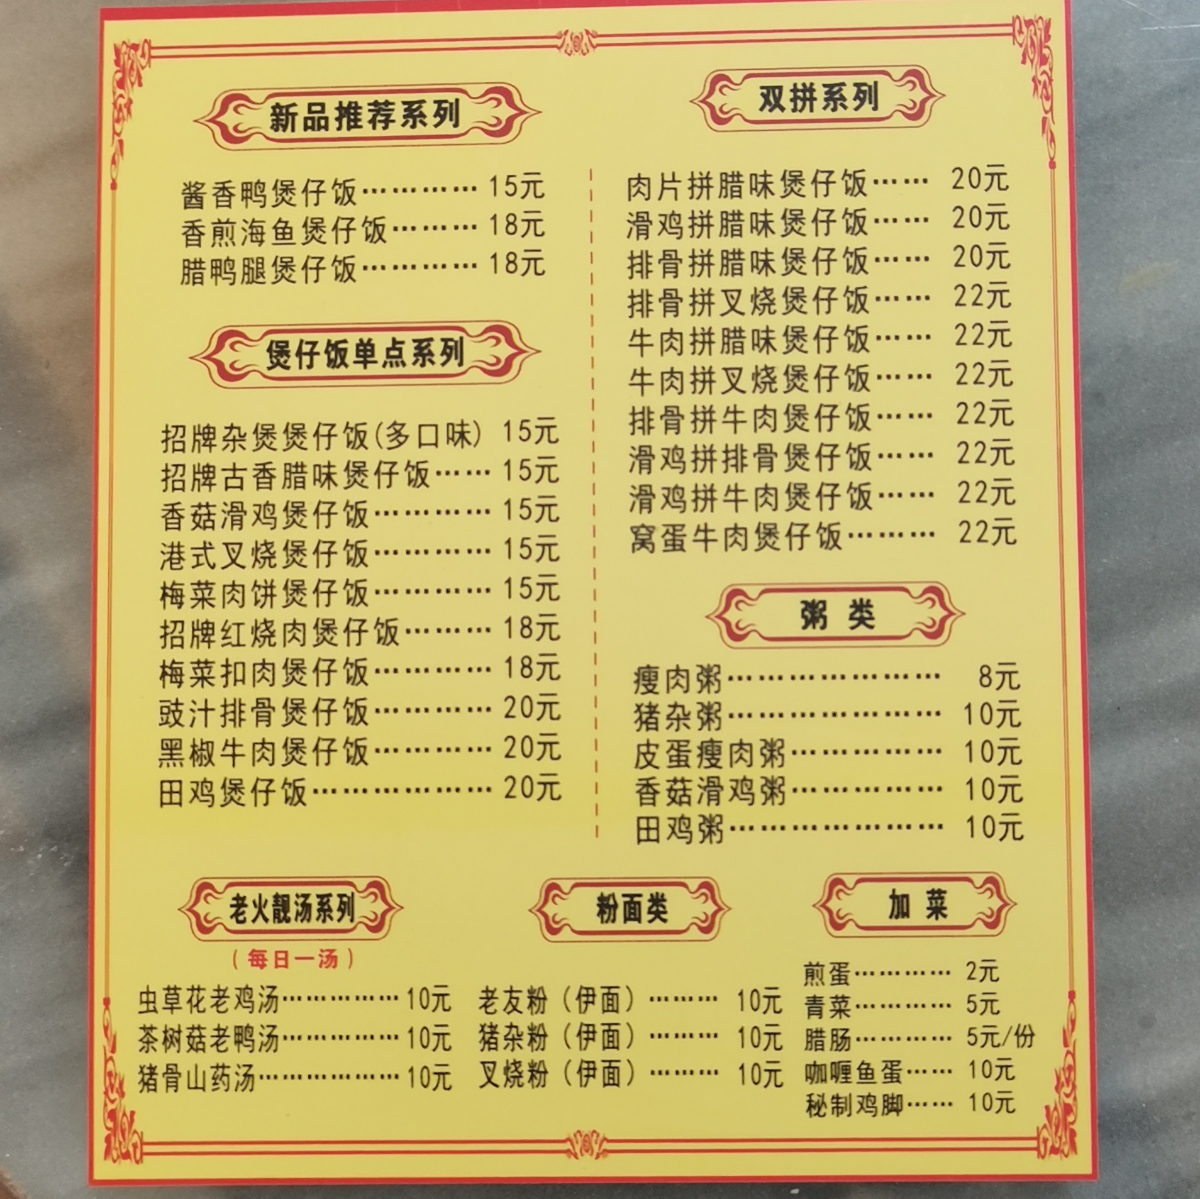 新品推荐系列
酱香鸭煲仔饭………… 15元
香煎海鱼煲仔饭……… 18元
腊鸭腿煲仔饭………… 18元
煲仔饭单点系列
招牌杂煲煲仔饭(多口味) 15元
招牌古香腊味煲仔饭…… 15元
香菇滑鸡煲仔饭………… 15元
港式叉烧煲仔饭………… 15元
梅菜肉饼煲仔饭………… 15元
招牌红烧肉煲仔饭……… 18元
梅菜扣肉煲仔饭………… 18元
豉汁排骨煲仔饭………… 20元
黑椒牛肉煲仔饭………… 20元
田鸡煲仔饭……………… 20元
双拼系列
肉片拼腊味煲仔饭…… 20元
滑鸡拼腊味煲仔饭…… 20元
排骨拼腊味煲仔饭…… 20元
排骨拼叉烧煲仔饭…… 22元
牛肉拼腊味煲仔饭…… 22元
牛肉拼叉烧煲仔饭…… 22元
排骨拼牛肉煲仔饭…… 22元
滑鸡拼排骨煲仔饭…… 22元
滑鸡拼牛肉煲仔饭…… 22元
窝蛋牛肉煲仔饭……… 22元
粥 类
瘦肉粥………………… 8元
猪杂粥………………… 10元
皮蛋瘦肉粥…………… 10元
香菇滑鸡粥…………… 10元
田鸡粥………………… 10元
老火靓汤系列
(每日一汤)
虫草花老鸡汤…………… 10元
茶树菇老鸭汤…………… 10元
猪骨山药汤……………… 10元
粉面类
老友粉(伊面)……… 10元
猪杂粉(伊面)……… 10元
叉烧粉(伊面)……… 10元
加 菜
煎蛋………… 2元
青菜………… 5元
腊肠………… 5元/份
咖喱鱼蛋…… 10元
秘制鸡脚…… 10元